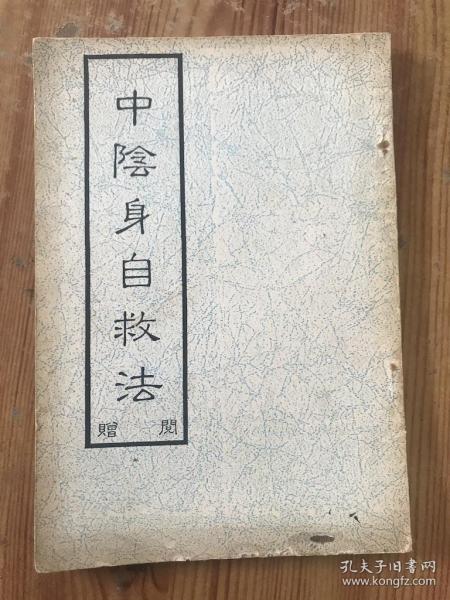 中陰身自救法
贈閱
孔夫子旧书网
www.kongfz.com